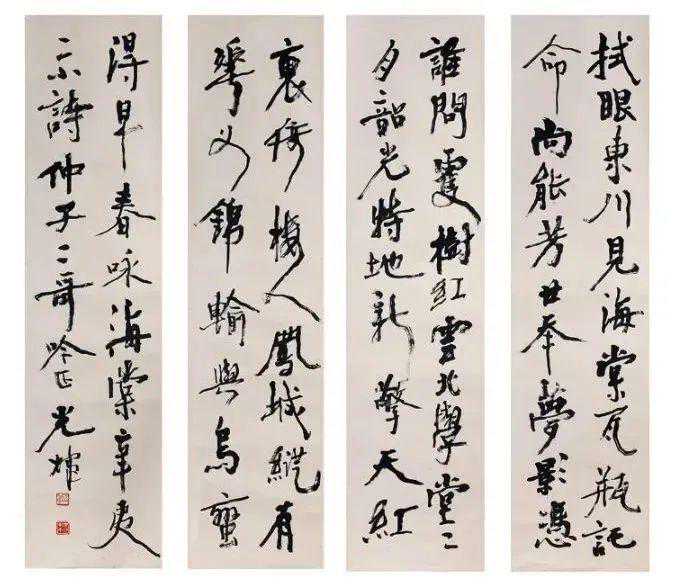 拭眼東川見海棠瓦瓶託
命尚能芳廿年夢影憑
誰問雙樹紅雲北學堂二
月韶光特地新擎天紅
裹倚樓人鳳城縱有
華如錦輸與烏蠻
得早春咏海棠辛夷
示詩仲子二哥吟正光煒